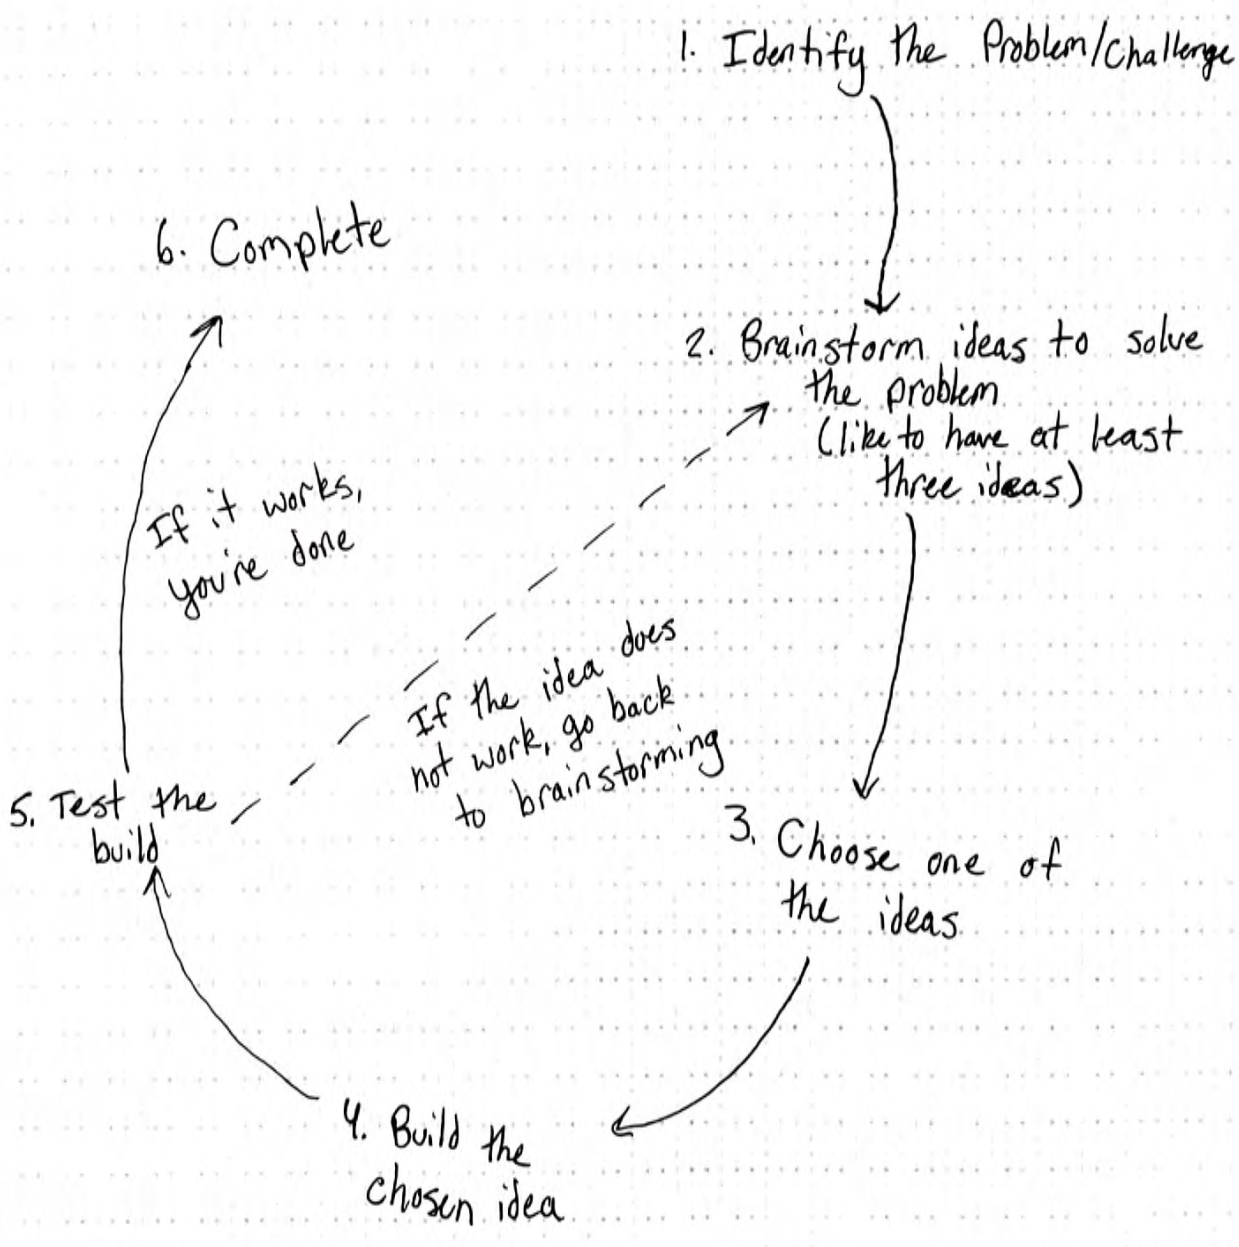 1. Identify the Problem/Challenge
2. Brainstorm ideas to solve
the problem
(like to have at least
three ideas)
3. Choose one of
the ideas
4. Build the
chosen idea
5. Test the
build
If the idea does
not work, go back
to brainstorming
If it works,
you're done
6. Complete